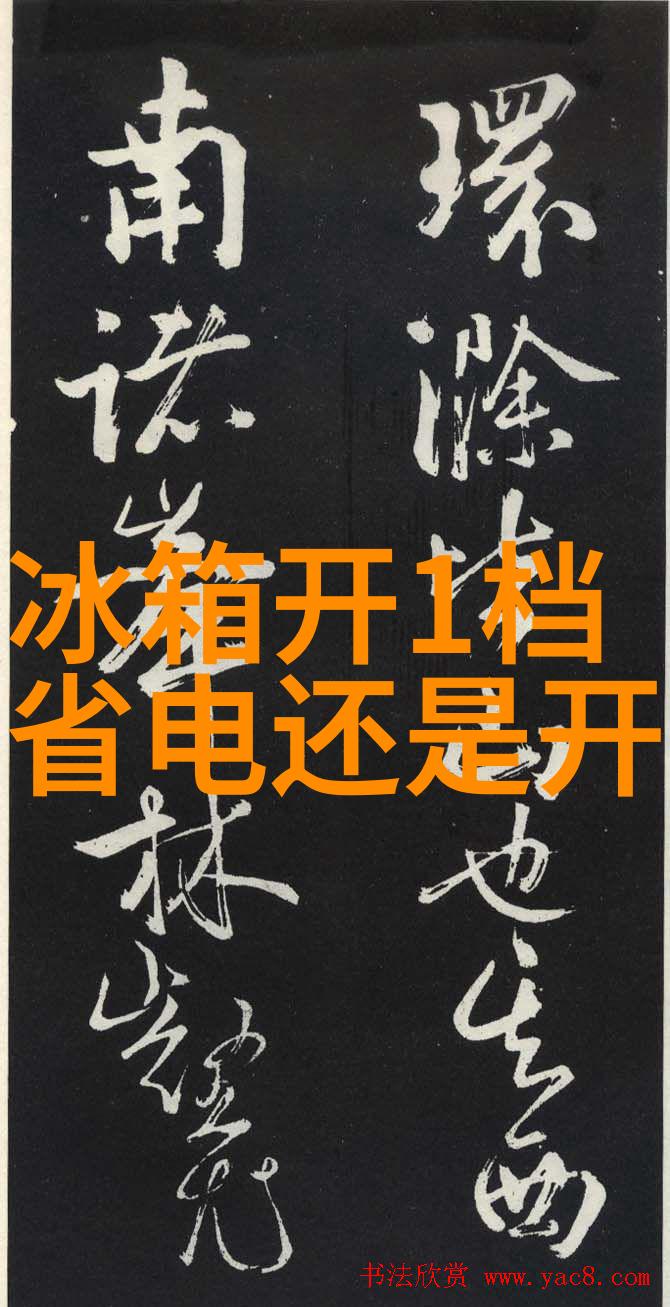 環滁皆山也其西
南諸峯林壑尤
冰箱开1档
省电还是开
书法欣赏 www.yac8.com